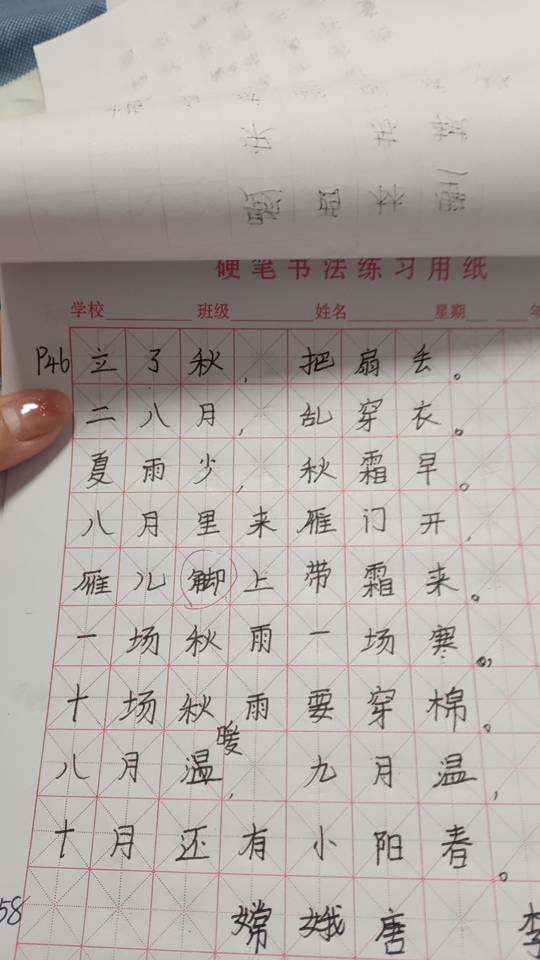 硬笔书法练习用纸
学校 班级 姓名 星期 年
P46 立了秋，把扇丢。
二八月，乱穿衣。
夏雨少，秋霜早。
八月里来雁门开，
雁儿脚上带霜来。
一场秋雨一场寒。，
十场秋雨要穿棉。
八月温，九月温，
暖
十月还有小阳春。
58 嫦娥 唐 李